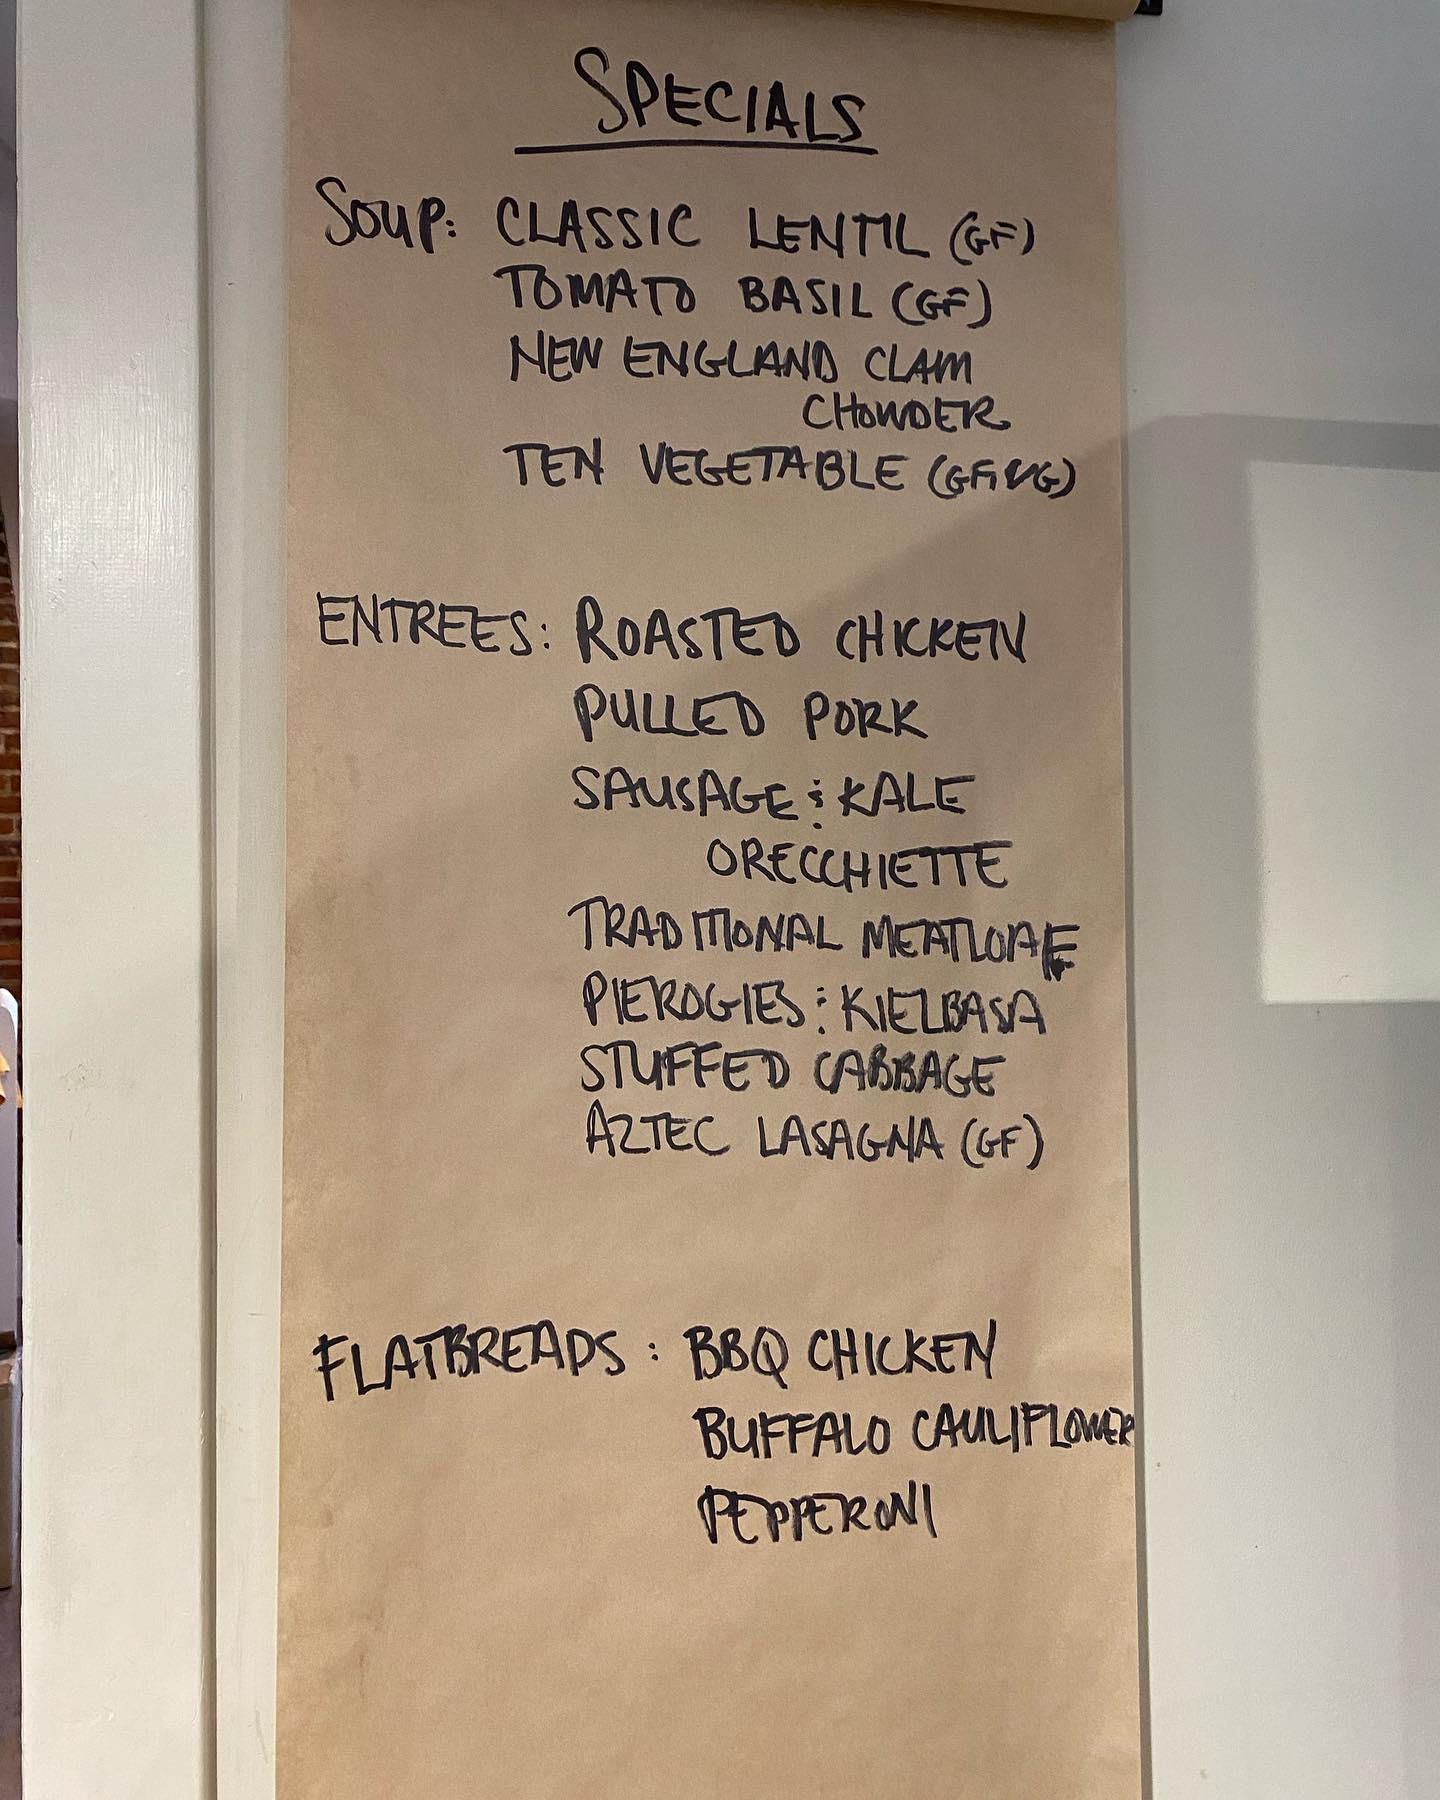 SPECIALS
SOUP: CLASSIC LENTIL (GF)
TOMATO BASIL (GF)
NEW ENGLAND CLAM
CHOWDER
TEN VEGETABLE (GF, VG)
ENTREES: ROASTED CHICKEN
PULLED PORK
SAUSAGE & KALE
ORECCHIETTE
TRADITIONAL MEATLOAF
PIEROGIES & KIELBASA
STUFFED CABBAGE
AZTEC LASAGNA (GF)
FLATBREADS: BBQ CHICKEN
BUFFALO CAULIFLOWER
PEPPERONI